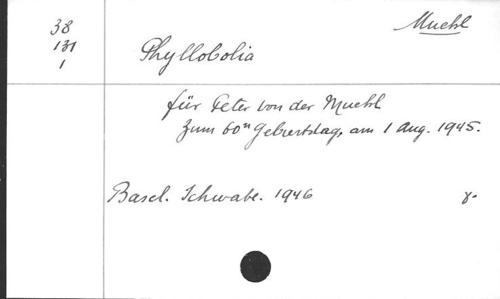 38
131
1
Muehl
Phyllobolia
für Peter von der Muehl
zum 60n Geburtstag, am 1 Aug. 1945.
Basel. Schwabe. 1946
8-